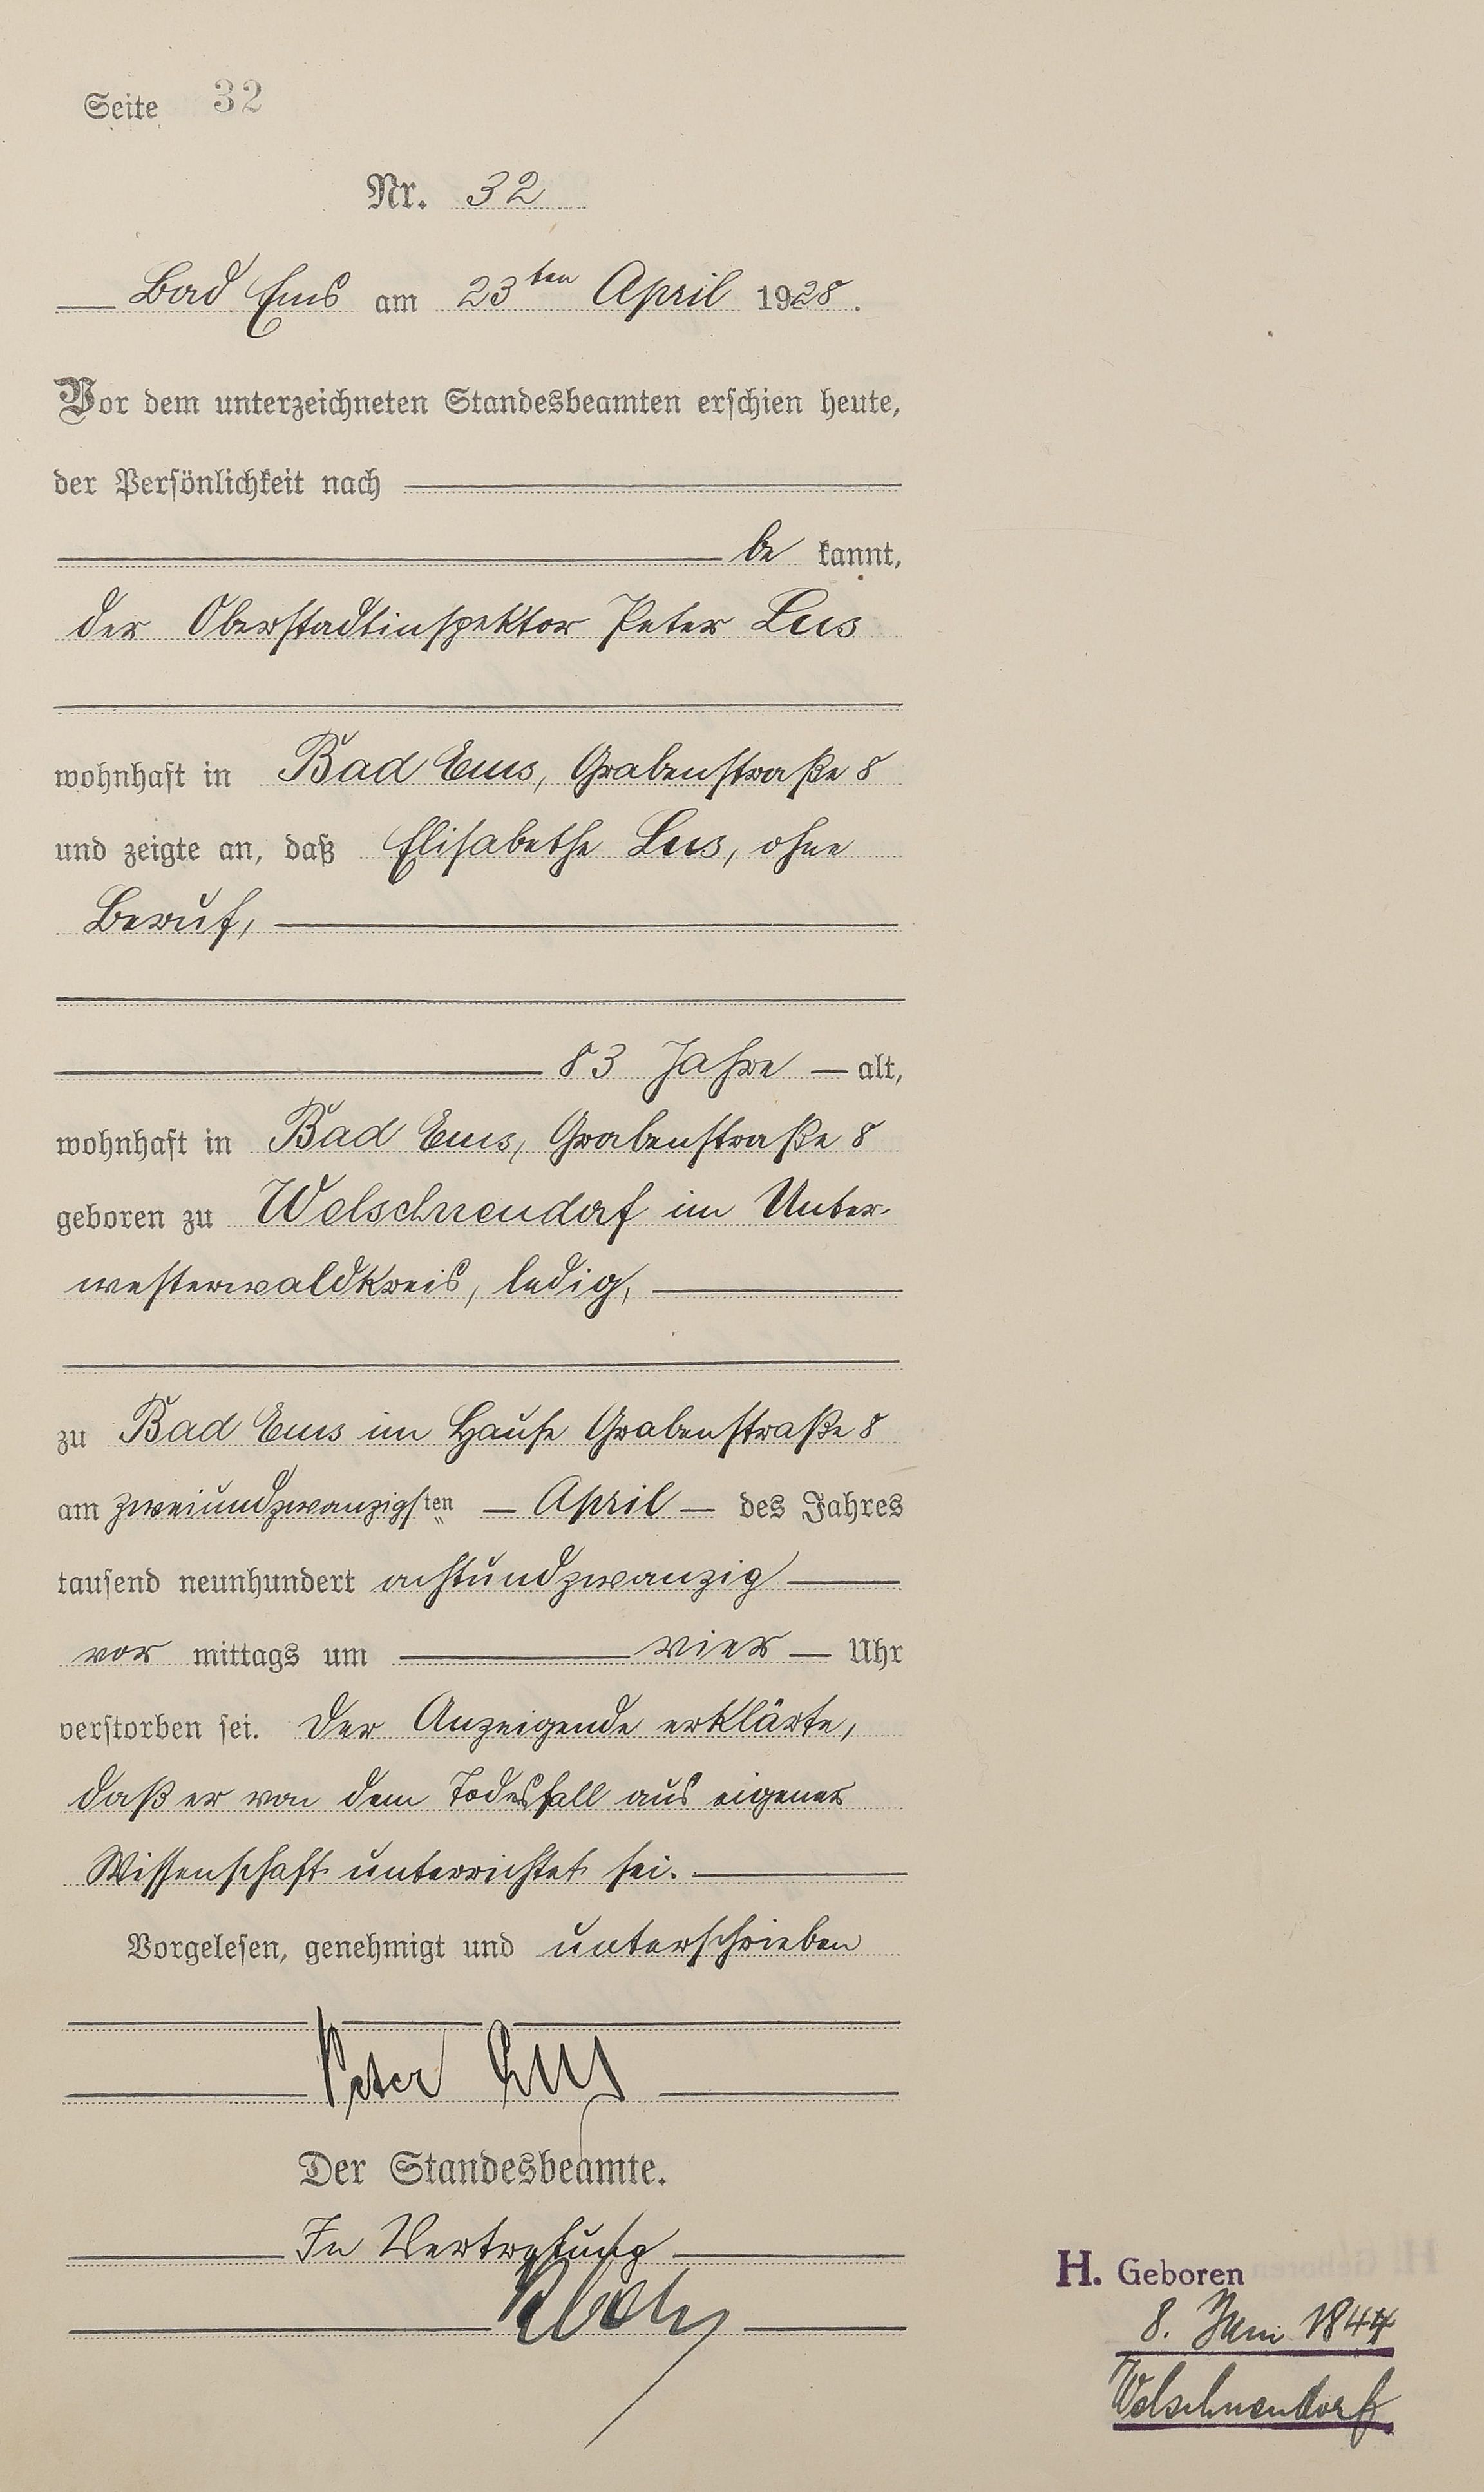 Seite 32
Nr. 32
Bad Ems am 23ten April 1928.
Vor dem unterzeichneten Standesbeamten erschien heute,
der Persönlichkeit nach
be kannt,
der Oberstadtinspektor Peter Lus
wohnhaft in Bad Ems, Grabenstraße 8
und zeigte an, daß Elisabethe Lus, ohne
Beruf,
83 Jahre — alt,
wohnhaft in Bad Ems, Grabenstraße 8
geboren zu Welschneudorf im Unter-
westerwaldkreis, ledig,
zu Bad Ems im Hause Grabenstraße 8
am zweiundzwanzigsten — April — des Jahres
tausend neunhundert achtundzwanzig
vor mittags um vier — Uhr
verstorben sei. Der Anzeigende erklärte,
daß er von dem Todesfall aus eigener
Wissenschaft unterrichtet sei.
Vorgelesen, genehmigt und unterschrieben
Peter Lus
Der Standesbeamte.
In Vertretung
H. Geboren
8. Juni 1844
Welschneudorf